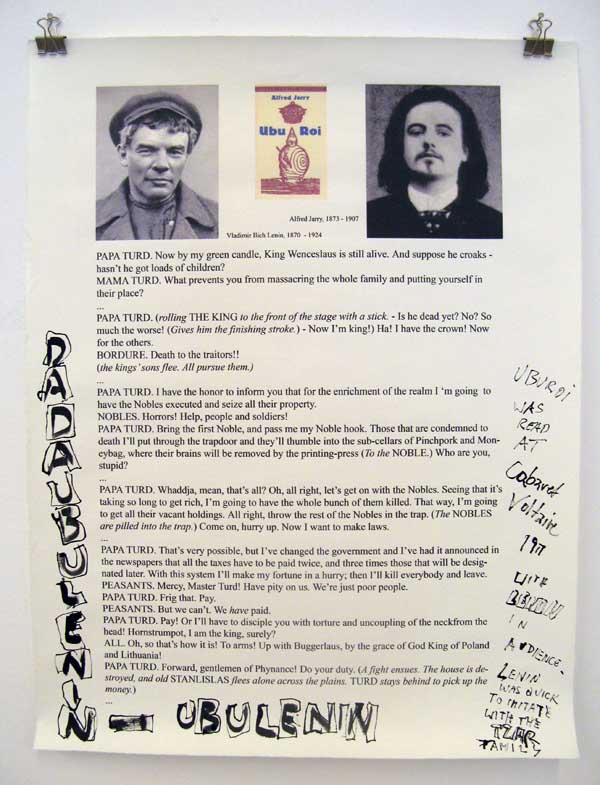 Alfred Jarry
Ubu Roi
Alfred Jarry, 1873 - 1907
Vladimir Ilich Lenin, 1870 - 1924
PAPA TURD. Now by my green candle, King Wenceslaus is still alive. And suppose he croaks -
hasn't he got loads of children?
MAMA TURD. What prevents you from massacring the whole family and putting yourself in
their place?
...
PAPA TURD. (rolling THE KING to the front of the stage with a stick. - Is he dead yet? No? So
much the worse! (Gives him the finishing stroke.) - Now I'm king!) Ha! I have the crown! Now
for the others.
BORDURE. Death to the traitors!!
(the kings' sons flee. All pursue them.)
...
PAPA TURD. I have the honor to inform you that for the enrichment of the realm I 'm going to
have the Nobles executed and seize all their property.
NOBLES. Horrors! Help, people and soldiers!
PAPA TURD. Bring the first Noble, and pass me my Noble hook. Those that are condemned to
death I'll put through the trapdoor and they'll thumble into the sub-cellars of Pinchpork and Mon-
eybag, where their brains will be removed by the printing-press (To the NOBLE.) Who are you,
stupid?
...
PAPA TURD. Whaddja, mean, that's all? Oh, all right, let's get on with the Nobles. Seeing that it's
taking so long to get rich, I'm going to have the whole bunch of them killed. That way, I'm going
to get all their vacant holdings. All right, throw the rest of the Nobles in the trap. (The NOBLES
are pilled into the trap.) Come on, hurry up. Now I want to make laws.
...
PAPA TURD. That's very possible, but I've changed the government and I've had it announced in
the newspapers that all the taxes have to be paid twice, and three times those that will be desig-
nated later. With this system I'll make my fortune in a hurry; then I'll kill everybody and leave.
PEASANTS. Mercy, Master Turd! Have pity on us. We're just poor people.
PAPA TURD. Frig that. Pay.
PEASANTS. But we can't. We have paid.
PAPA TURD. Pay! Or I'll have to disciple you with torture and uncoupling of the neckfrom the
head! Hornstrumpot, I am the king, surely?
ALL. Oh, so that's how it is! To arms! Up with Buggerlaus, by the grace of God King of Poland
and Lithuania!
PAPA TURD. Forward, gentlemen of Phynance! Do your duty. (A fight ensues. The house is de-
stroyed, and old STANLISLAS flees alone across the plains. TURD stays behind to pick up the
money.)
...
DADAUBULENIN - UBULENIN
UBUROI
WAS
READ
AT
Cabaret
Voltaire
WITH
IN
AUDIENCE-
LENIN
WAS QUICK
TO IMITATE
WITH THE
TZAR
FAMILY